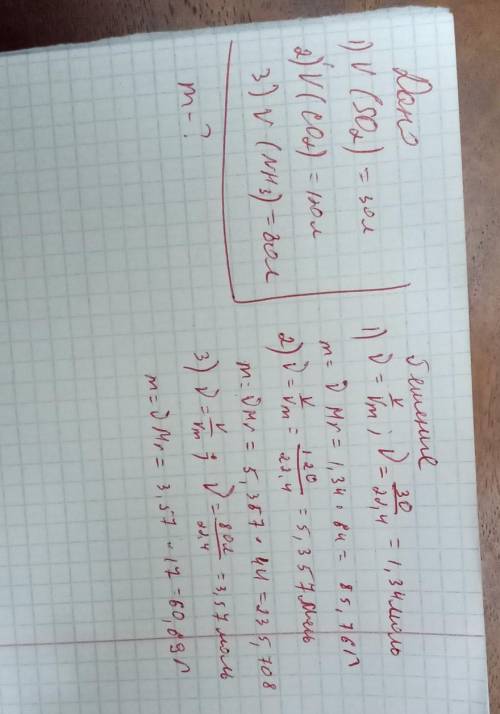 Дано
1) V (SO2) = 30л
2) V (CO2) = 120л
3) V (NH3) = 80л
m - ?
Решение
1) ν = V/Vm ; ν = 30/22,4 = 1,34 моль
m = ν Mr = 1,34 · 64 = 85,76 г
2) ν = V/Vm = 120/22,4 = 5,357 моль
m = ν Mr = 5,357 · 44 = 235,708
3) ν = V/Vm ; ν = 80л/22,4 = 3,57 моль
m = ν Mr = 3,57 · 17 = 60,69 г